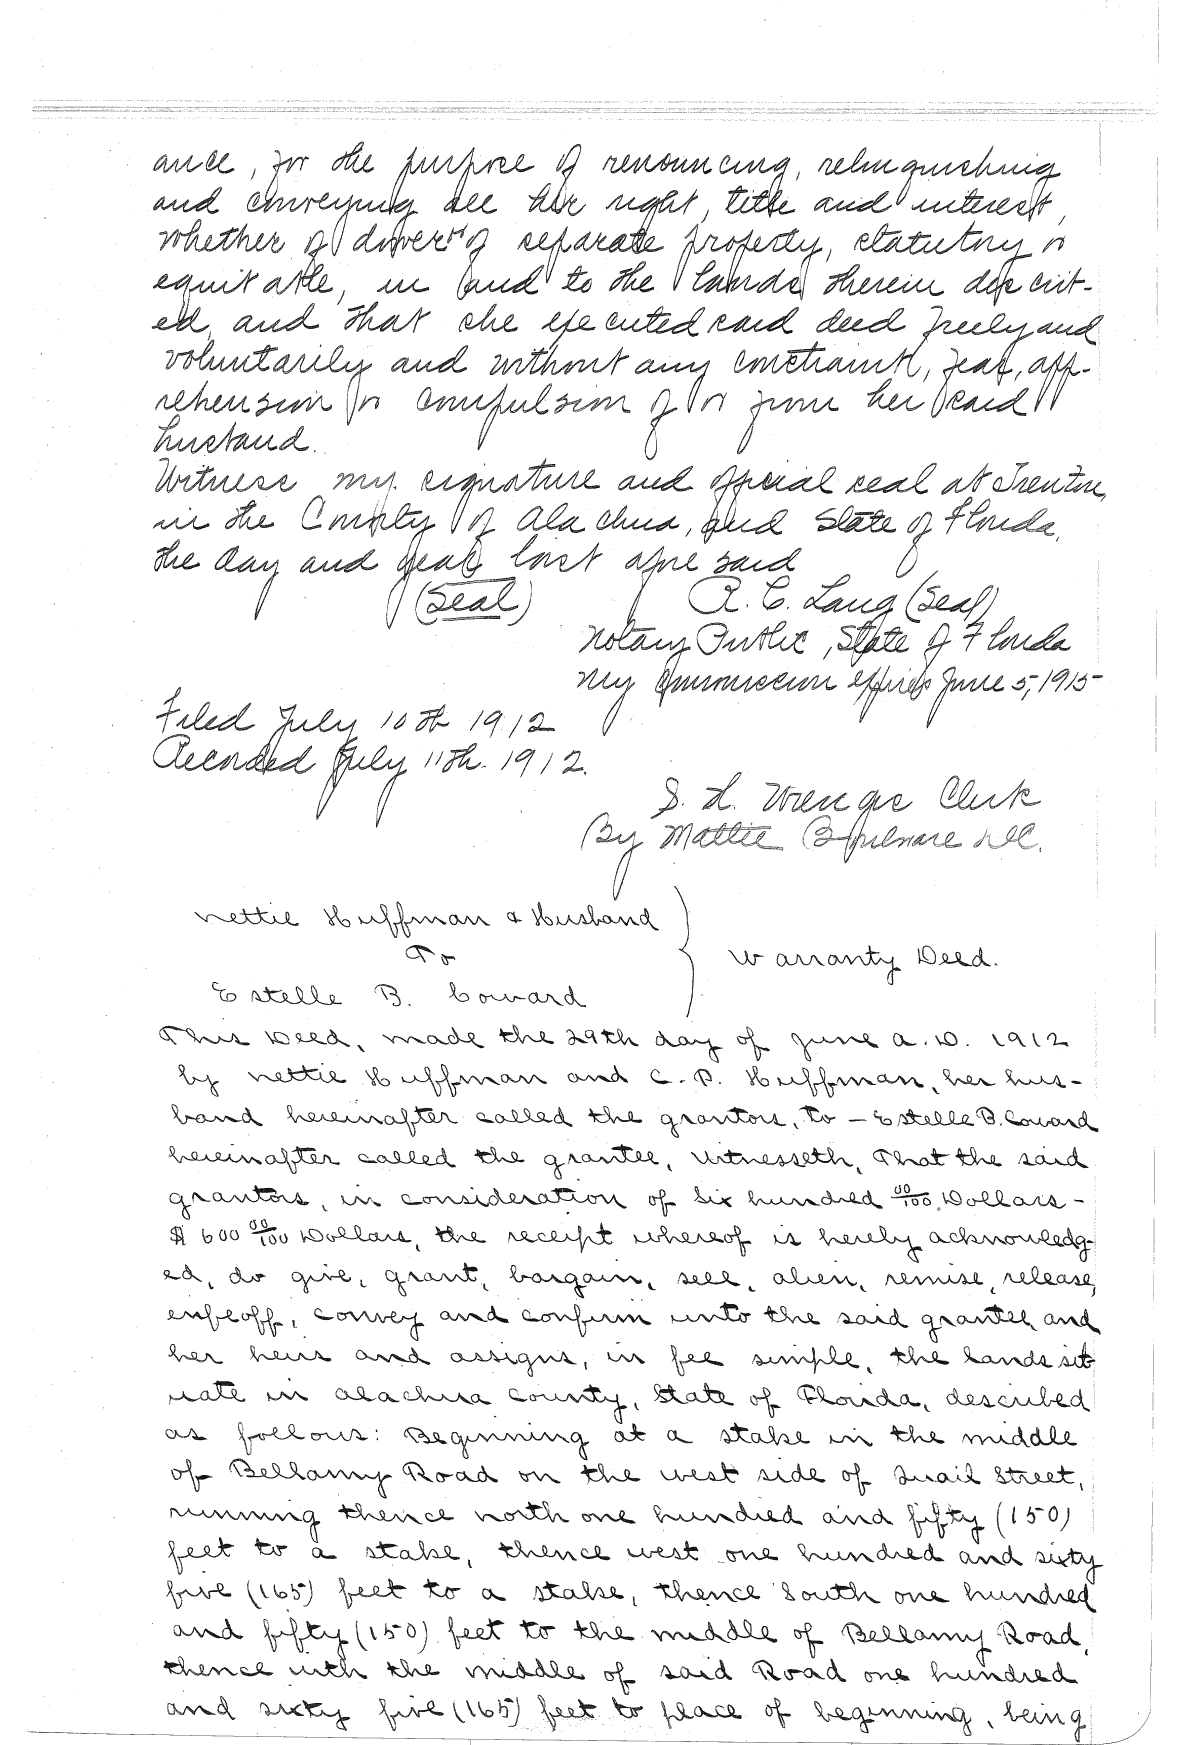 ance, for the purpose of renouncing, relinquishing
and conveying all her right, title and interest,
whether of dower or of separate property, statutory or
equitable, in and to the lands therein describ-
ed, and that she executed said deed freely and
voluntarily and without any constraint, fear, app-
rehension or compulsion of or from her said
husband.
Witness my signature and official seal at Trenton,
in the County of Alachua, and State of Florida,
the day and year last afore said
(Seal) R. C. Lang (Seal)
Notary Public, State of Florida
My commission expires June 5, 1915
Filed July 10th 1912
Recorded July 11th. 1912.
S. H. Wienges Clerk
By Mattie B D.C.
Nettie Huffman & Husband
To
Warranty Deed.
Estelle B. Coward
This Deed, made the 29th day of June A.D. 1912
by Nettie Huffman and C. P. Huffman, her hus-
band hereinafter called the grantors, to - Estelle B. Coward
hereinafter called the grantee, Witnesseth, That the said
grantors, in consideration of Six hundred 00/100 Dollars -
$ 600 00/100 Dollars, the receipt whereof is hereby acknowledg-
ed, do give, grant, bargain, sell, alien, remise, release,
enfeoff, convey and confirm unto the said grantee, and
her heirs and assigns, in fee simple, the lands sit
uate in Alachua County, State of Florida, described
as follows: Beginning at a stake in the middle
of Bellamy Road on the west side of Quail Street,
running thence north one hundred and fifty (150)
feet to a stake, thence west one hundred and sixty
five (165) feet to a stake, thence South one hundred
and fifty (150) feet to the middle of Bellamy Road,
thence with the middle of said Road one hundred
and sixty five (165) feet to place of beginning, being